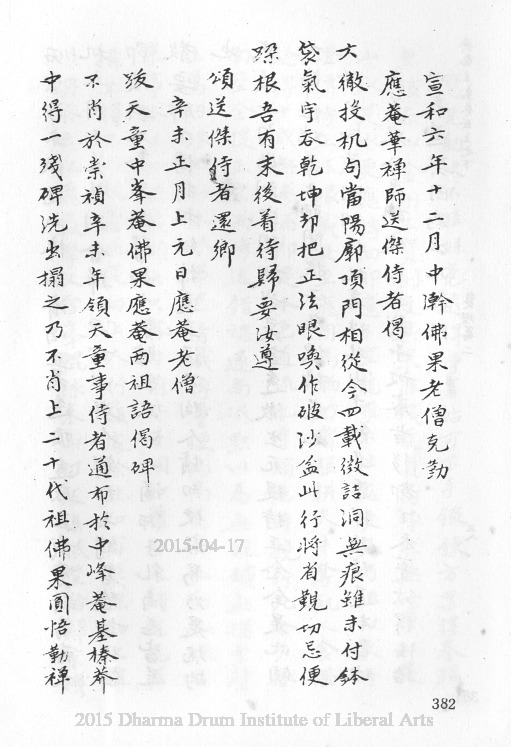 宣和六年十二月中澣佛果老僧克勤
應菴華禪師送傑侍者偈
大徹投机句當陽廓頂門相從今四載徵詰洞無痕雖未付鉢
袋氣宇吞乾坤却把正法眼喚作破沙盆此行將省覲切忌便
跺根吾有末後着待歸要汝遵
頌送傑侍者還鄉
辛未正月上元日應菴老僧
跋天童中峯菴佛果應菴兩祖語偈碑
不肖於崇禎辛未年領天童事侍者通布於中峰菴基榛莽
中得一殘碑洗出搨之乃不肖上二十代祖佛果圓悟勤禪
2015-04-17
382
2015 Dharma Drum Institute of Liberal Arts